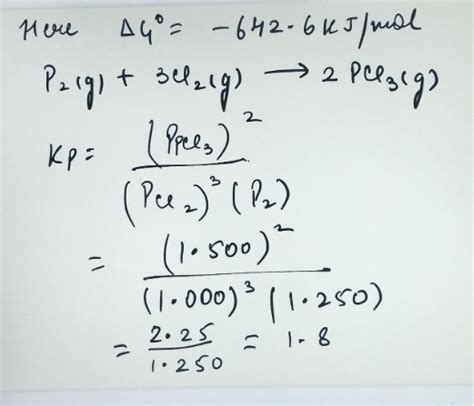 Here ΔG° = -642.6 KJ/mol
P₂(g) + 3Cl₂(g) ⟶ 2 PCl₃(g)
Kp = (PPCl₃)² / (PCl₂)³ (P₂)
= (1.500)² / (1.000)³ (1.250)
= 2.25 / 1.250 = 1.8